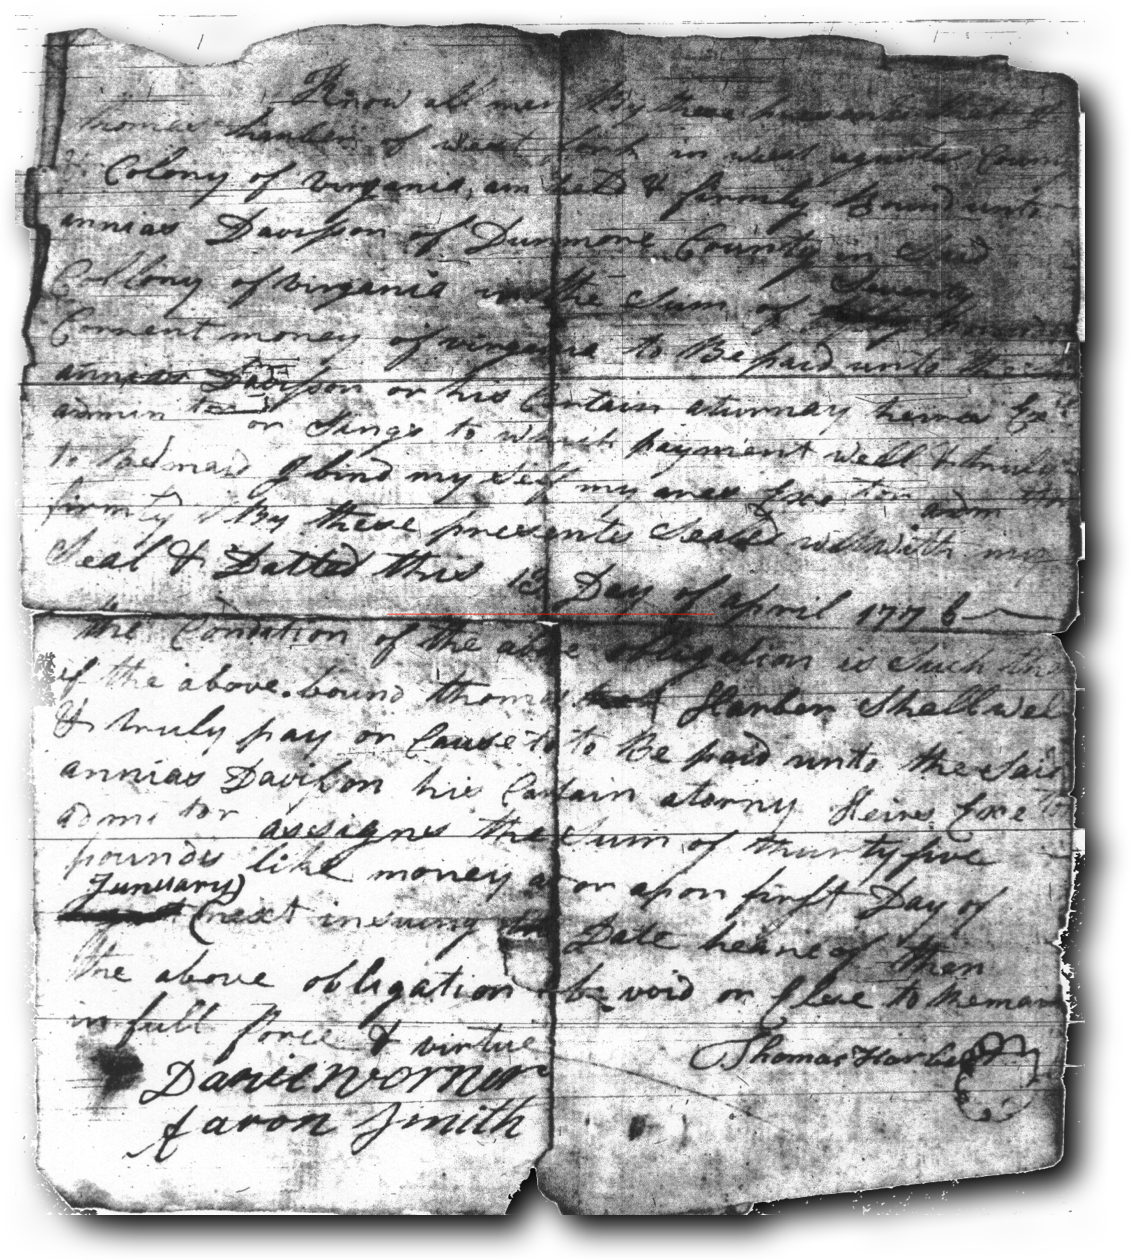 Know all men By these presents that I
thomas harber of west fork in west agusta County
Colony of virgania, am held & firmly Bound unto
annias Davisson of Dunmore County in Said
Collony of virgania in the Sum of Seventy pounds
Corrent money of virgania to Be paid unto the
annias Davisson or his Certain aturnay heirs Exe
admin or Sings to which payment well & truly
to be maid I bind my Self my aires Exe tor adm tor
firmly By these presents Sealed with my
Seal & Datted this 13 Day of april 1776
the Condition of the above obligation is Such tha
if the above bound thomas Harber Shall wel
& truly pay or Cause to to Be paid unto the Said
annias Davison his Cartain atorny Heirs Exe tor
admi tor assagns the Sum of thurty five
pounds like money at or apon first Day of
Junuary (next insuing the Date heareof then
the above obligation be void or Elese to Reman
in full force & virtue
Thomas Harber
Davie Worner
Aaron Smith